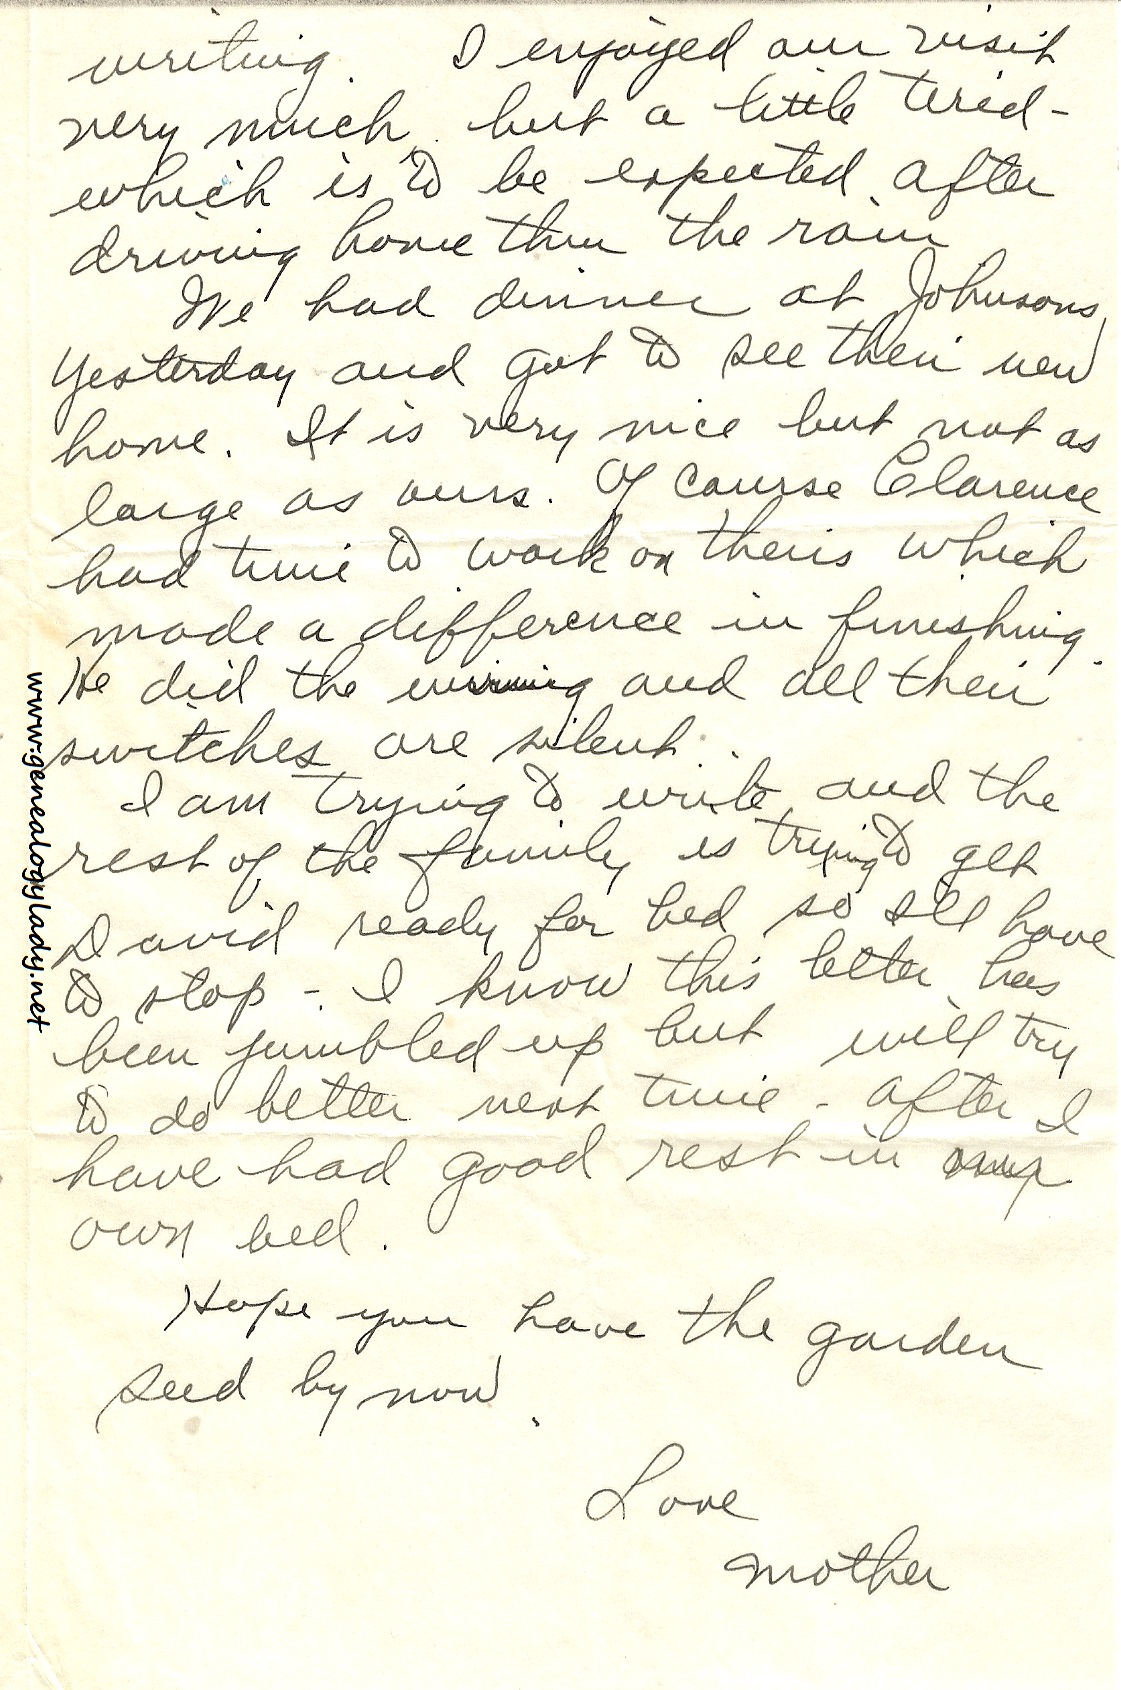 writing. I enjoyed our visit
very much, but a little tired -
which is to be expected after
driving home thru the rain
We had dinner at Johnsons
yesterday and got to see their new
home. It is very nice but not as
large as ours. Of course Clarence
had time to work on theirs which
made a difference in finishing.
He did the wiring and all their
switches are silent.
I am trying to write and the
rest of the family is trying to get
David ready for bed so I'll have
to stop - I know this letter has
been jumbled up but will try
to do better next time - after I
have had good rest in my
own bed.
Hope you have the garden
seed by now.
Love
Mother
www.genealogylady.net